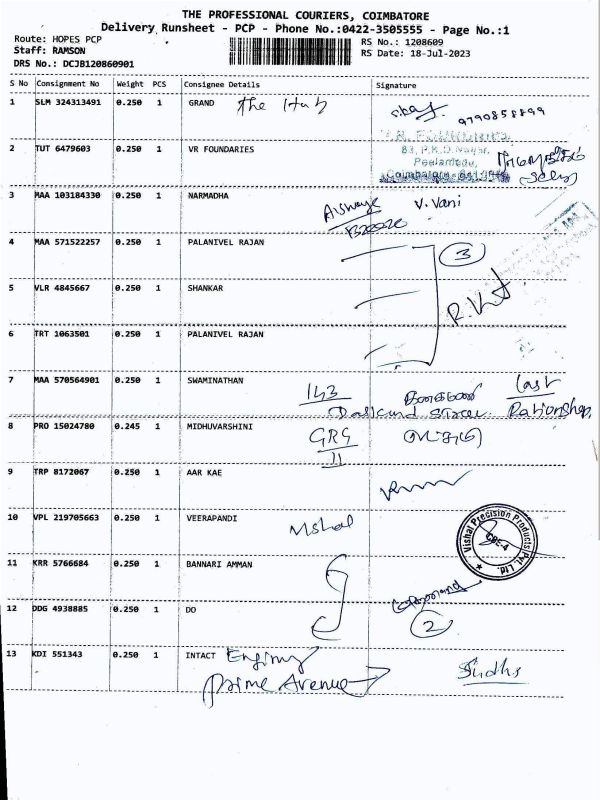 THE PROFESSIONAL COURIERS, COIMBATORE
Delivery Runsheet - PCP - Phone No.:0422-3505555 - Page No.:1
Route: HOPES PCP
RS No.: 1208609
Staff: RAMSON
RS Date: 18-Jul-2023
DRS No.: DCJB120860901
S No Consignment No Weight PCS Consignee Details Signature
1 SLM 324313491 0.250 1 GRAND The Hub
9790858899
2 TUT 6479603 0.250 1 VR FOUNDARIES
83, P.K.D. Nagar,
Peelamedu,
Coimbatore
3 MAA 103184330 0.250 1 NARMADHA
V. Vani
4 MAA 571522257 0.250 1 PALANIVEL RAJAN
3
5 VLR 4845667 0.250 1 SHANKAR
6 TRT 1063501 0.250 1 PALANIVEL RAJAN
7 MAA 570564901 0.250 1 SWAMINATHAN
143 Last
8 PRO 15024780 0.245 1 MIDHUVARSHINI GRG
II
9 TRP 8172067 0.250 1 AAR KAE
10 VPL 219705663 0.250 1 VEERAPANDI
Vishal Precision Products Pvt. Ltd.
CBE-4
11 KRR 5766684 0.250 1 BANNARI AMMAN
12 DDG 4938885 0.250 1 DO
2
13 KDI 551343 0.250 1 INTACT
Prime Avenue
Sindhs